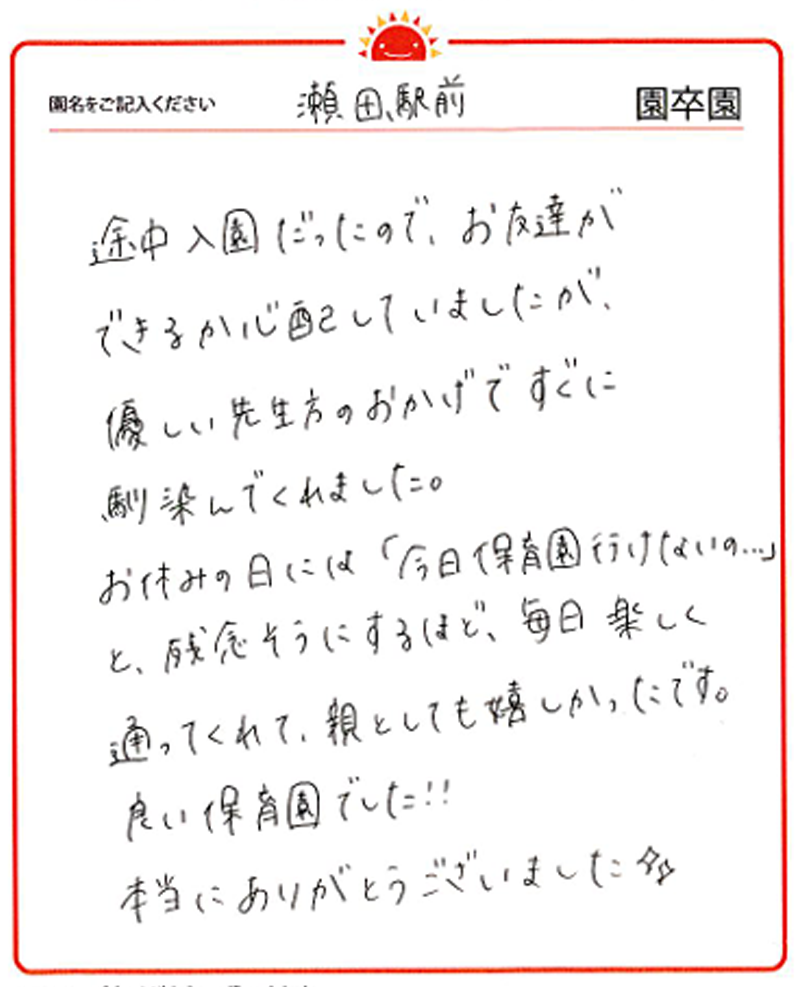 園名をご記入ください 瀬田駅前 園卒園
途中入園だったので、お友達が
できるか心配していましたが、
優しい先生方のおかげですぐに
馴染んでくれました。
お休みの日には「今日保育園行けないの…」
と、残念そうにするほど、毎日楽しく
通ってくれて、親としても嬉しかったです。
良い保育園でした!!
本当にありがとうございました☆☆